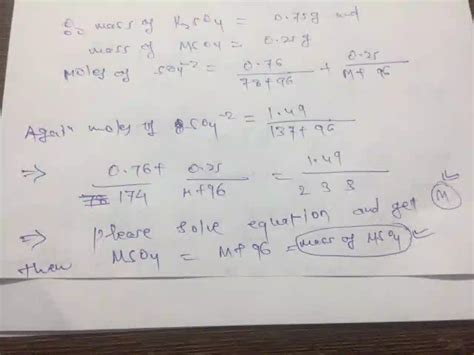 So mass of K₂SO₄ = 0.75g and
mass of MSO₄ = 0.25g
Moles of SO₄⁻² = 0.76/78+96 + 0.25/M+96
Again moles of SO₄⁻² = 1.49/137+96
⇒ 0.76/174 + 0.25/M+96 = 1.49/233
⇒ please solve equation and get M
then MSO₄ = M+96 = mass of MSO₄